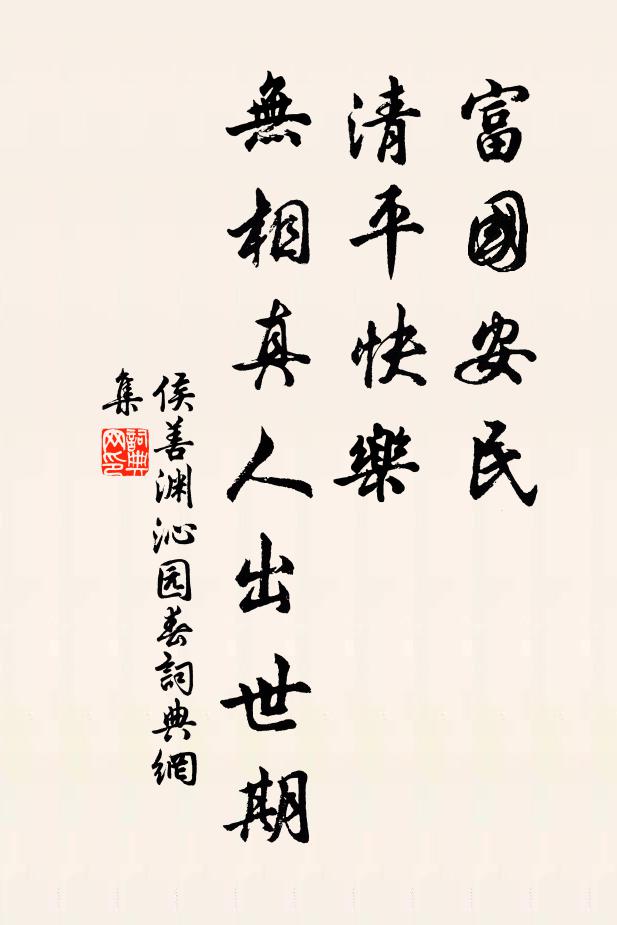 富國安民
清平快樂
無相真人出世期
侯善渊沁园春詞典網
集
詞典
网印